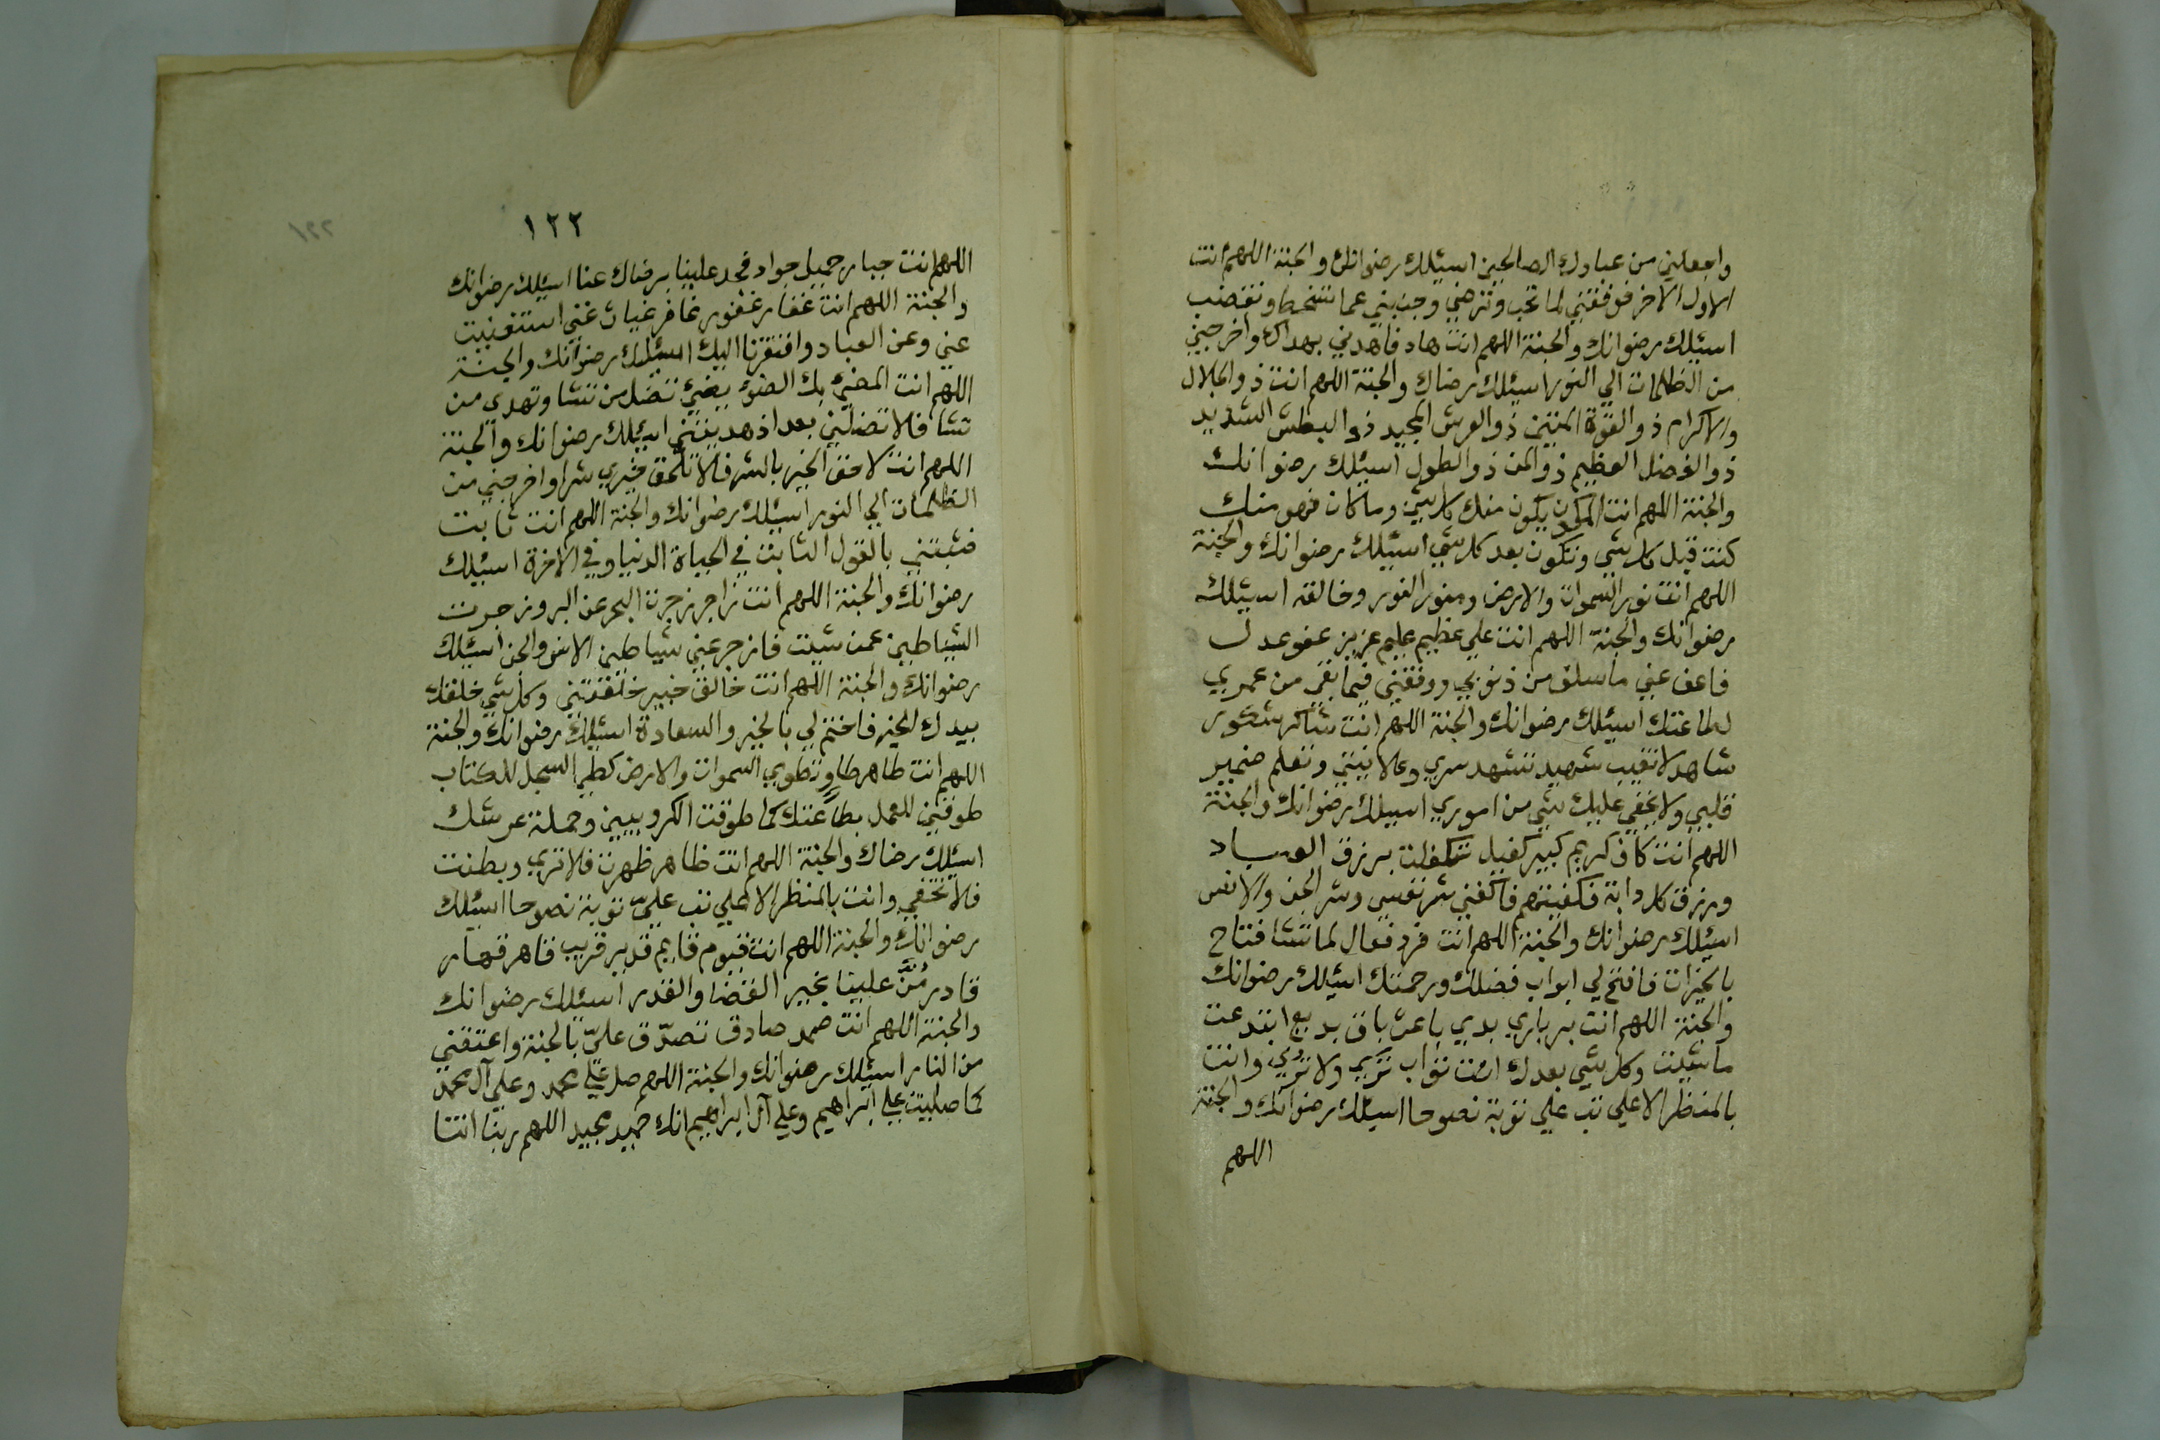 واجعلني من عبادك الصالحين اسئلك رضوانك والجنة اللهم انت
الاول الاخر فوفقني لما تحب وترضي وجنبني عما تسخط وتغضب
اسئلك رضوانك والجنة اللهم انت هاد فاهدني بهداك واخرجني
من الظلمات الي النور اسئلك رضاك والجنة اللهم انت ذو الجلال
والاكرام ذو القوة المتين ذو العرش المجيد ذو البطش الشديد
ذو الفضل العظيم ذو المن ذو الطول اسئلك رضوانك
والجنة اللهم انت المكون يكون منك كل شي وما كان فهو منك
كنت قبل كل شي وتكون بعد كل شي اسئلك رضوانك والجنة
اللهم انت نور السموات والارض ومنور النور وخالقه اسئلك
رضوانك والجنة اللهم انت علي عظيم عليم عزيز عفو عدل
فاعف عني ما سلف من ذنوبي ووفقني فيما بقي من عمري
لطاعتك اسئلك رضوانك والجنة اللهم انت شاكر شكور
شاهد لا تغيب شهيد تشهد سري وعلانيتي وتعلم ضمير
قلبي ولا يخفي عليك شي من اموري اسئلك رضوانك والجنة
اللهم انت كاف كريم كبير كفيل تكفلت برزق العباد
ورزق كل دابة فكفيتهم فاكفني شر نفسي وشر الجن والانس
اسئلك رضوانك والجنة اللهم انت فرد فعال لما تشا فتاح
بالخيرات فافتح لي ابواب فضلك ورحمتك اسئلك رضوانك
والجنة اللهم انت بر باري بدي باعث باق بديع ابتدعت
ما شيت وكل شي بعدك انت تواب تري ولا تري وانت
بالمنظر الاعلي تب علي توبة نصوحا اسئلك رضوانك والجنة
اللهم
١٢٢
اللهم انت جبار جميل جواد فجد علينا برضاك عنا اسئلك رضوانك
والجنة اللهم انت غفار غفور غافر غياث غني استغنيت
عني وعن العباد وافتقرنا اليك اسئلك رضوانك والجنة
اللهم انت المضي بك الضو يضي تضل من تشا وتهدي من
تشا فلا تضلني بعد اذ هديتني اسئلك رضوانك والجنة
اللهم انت لاحق الخير بالشر فلا تلحق خيري شرا واخرجني من
الظلمات الي النور اسئلك رضوانك والجنة اللهم انت ثابت
فثبتني بالقول الثابت في الحياة الدنيا وفي الاخرة اسئلك
رضوانك والجنة اللهم انت زاجر زجرت البحر عن البر وزجرت
الشياطين عمن شيت فازجر عني شياطين الانس والجن اسئلك
رضوانك والجنة اللهم انت خالق خبير خلقتني وكل شي خلقك
بيدك الخير فاختم لي بالخير والسعادة اسئلك رضوانك والجنة
اللهم انت طاهر طاو وتطوي السموات والارض كطي السجل للكتاب
طوقني للعمل بطاعتك كما طوقت الكروبيين وحملة عرشك
اسئلك رضاك والجنة اللهم انت ظاهر ظهرت فلا تري وبطنت
فلا تخفي وانت بالمنظر الاعلي تب عليّ توبة نصوحا اسئلك
رضوانك والجنة اللهم انت قيوم قايم قدير قريب قاهر قهار
قادر مُنَّ علينا بخير القضا والقدر اسئلك رضوانك
والجنة اللهم انت صمد صادق تصدّق عليّ بالجنة واعتقني
من النار اسئلك رضوانك والجنة اللهم صل علي محمد وعلي آل محمد
كما صليت علي ابراهيم وعلي آل ابراهيم انك حميد مجيد اللهم ربنا اتنا